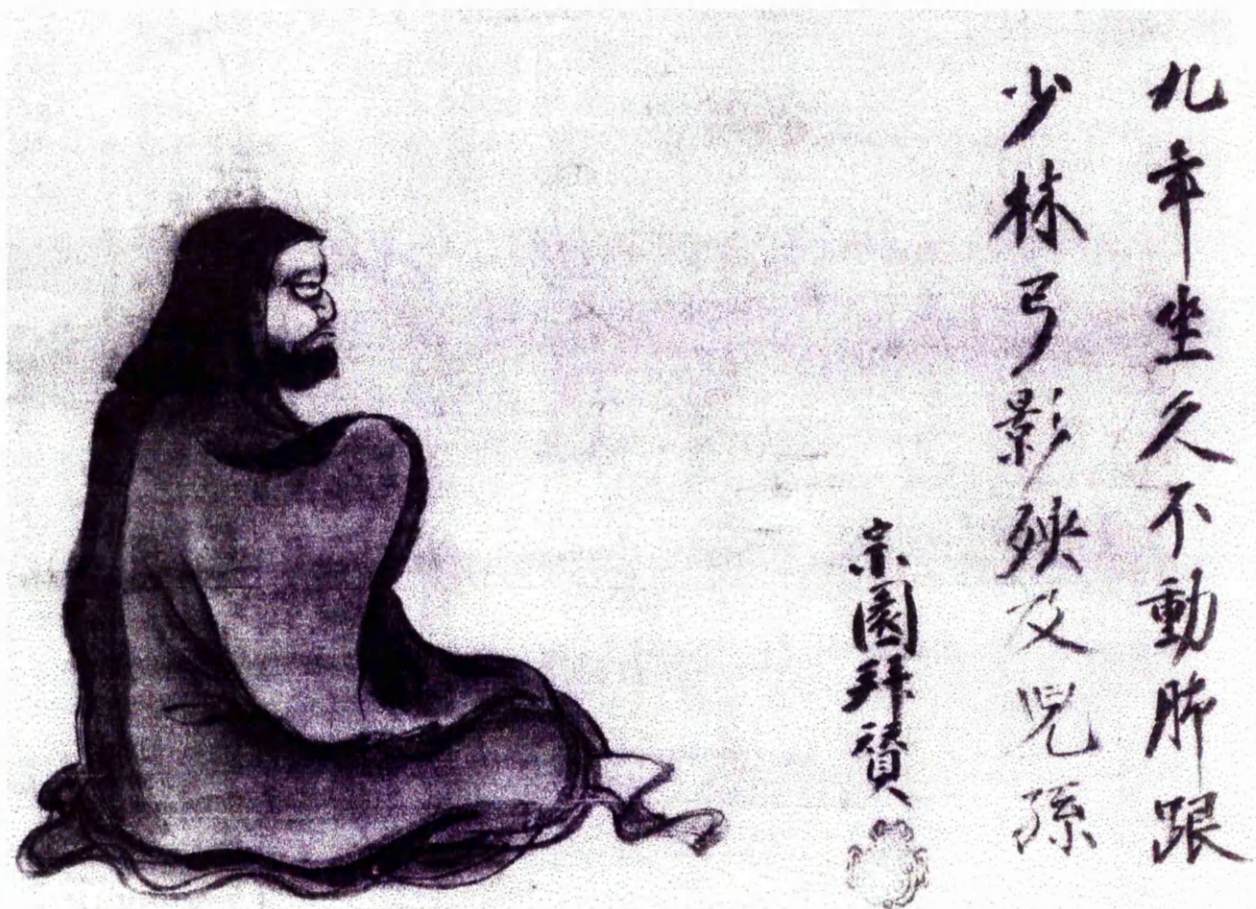 九年坐久不動脚跟
少林弓影殃及児孫
宗園拜賛